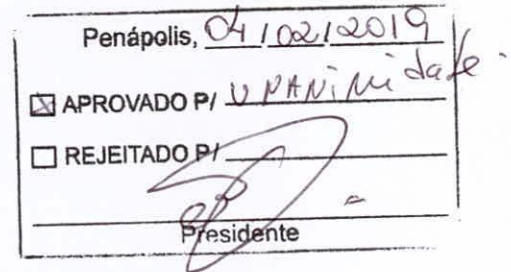 Penápolis, 04/02/2019
☒ APROVADO P/ UNANiMidade.
☐ REJEITADO P/
Presidente